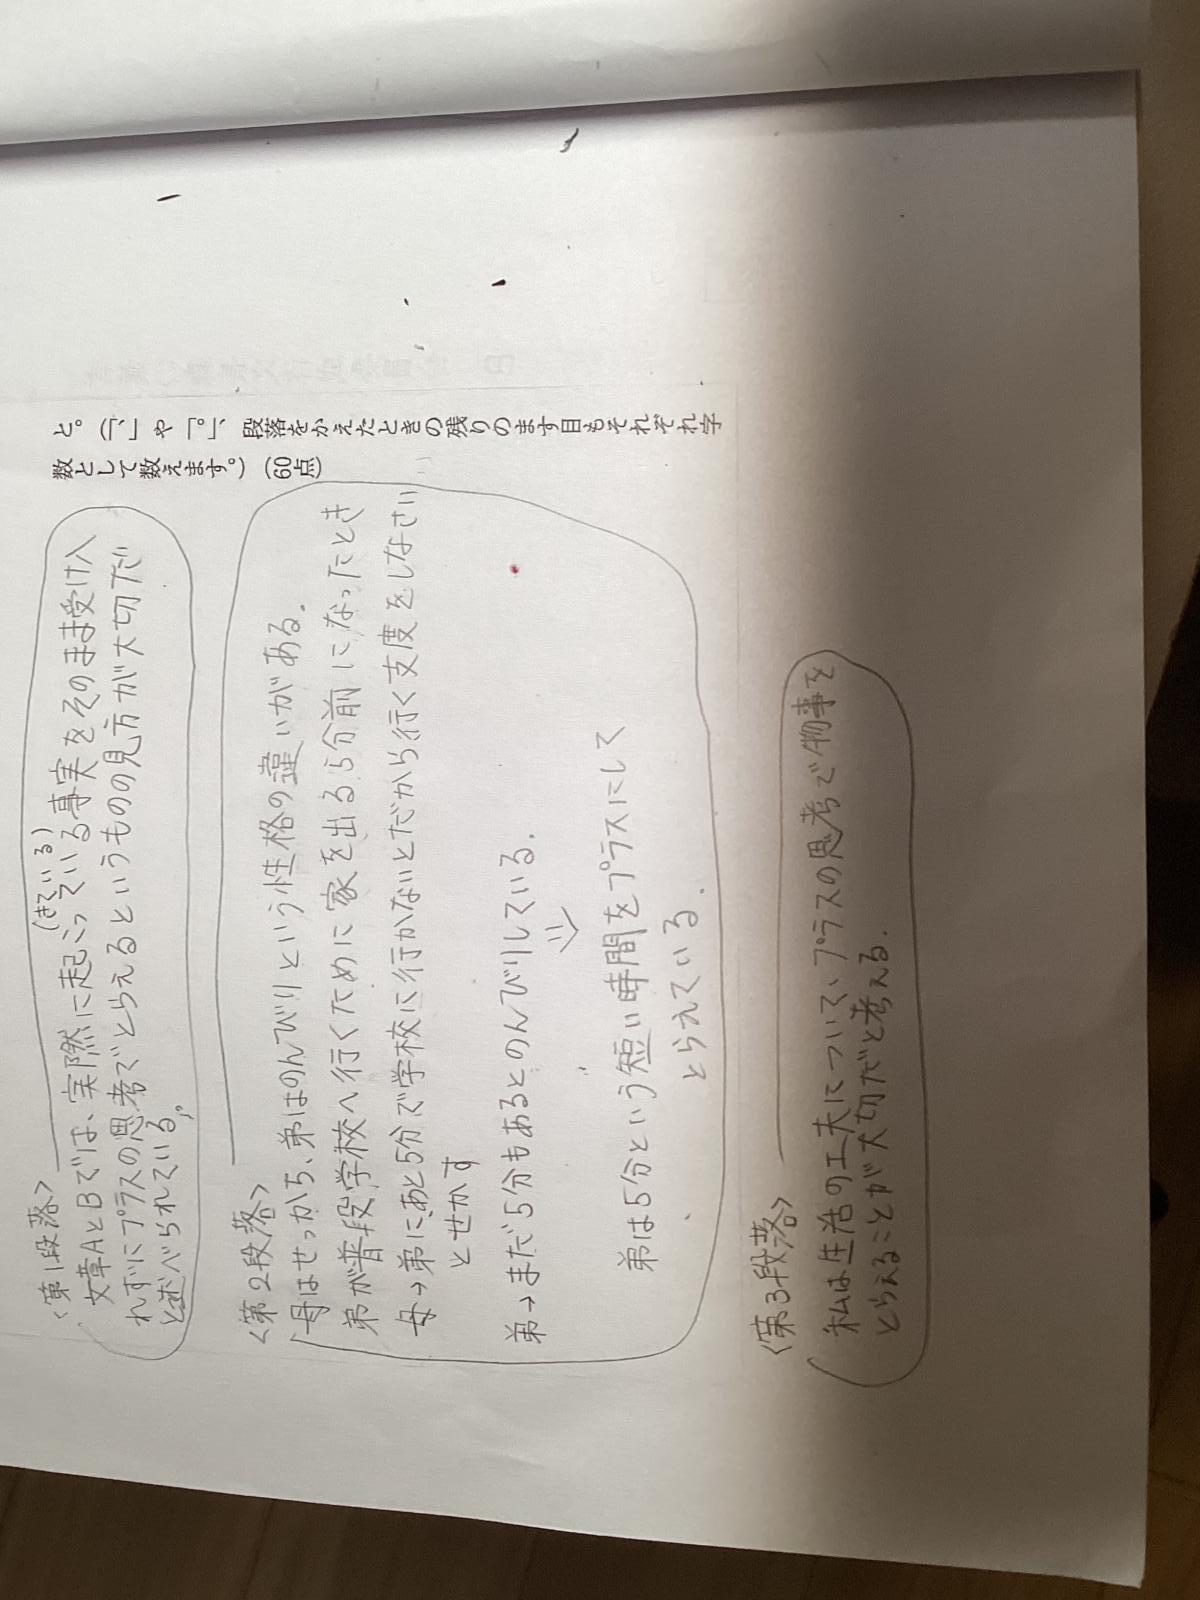 と。(「、」や「。」、段落をかえたときの残りのます目もそれぞれ字
数として数えます。)(60点)
<第1段落>
(きている)
文章AとBでは、実際に起こっている事実をそのまま受け入
れずにプラスの思考でとらえるというものの見方が大切だ
と述べられている。
<第2段落>
母はせっかち、弟はのんびりという性格の違いがある。
弟が普段学校へ行くために家を出る5分前になったとき
母→弟にあと5分で学校に行かないとだから行く支度をしなさい
とせかす
弟→まだ5分もあるとのんびりしている。
弟は5分という短い時間をプラスにして
とらえている。
<第3段落>
私は生活の工夫について、プラスの思考で物事を
とらえることが大切だと考える。